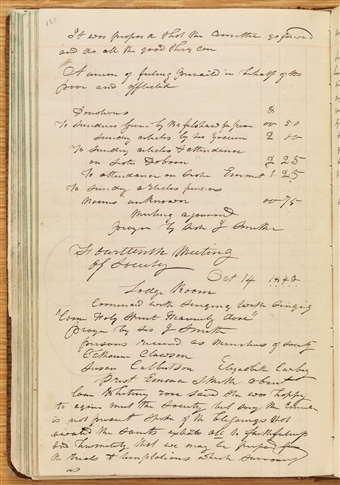 It was propos a that the Committe go forward
and do all the good they can
A union of feeling prevailed in behalf of the
poor and afflicted
Donations $
To Sundries given by Mrs for poor 00 50
Sunday articles by Sis 2 00
To Sunday articles & attendance
on Sister Dobson 2 25
To attendance on Sister 1 25
To Sunday articles persons
Names unknown 00 75
Meeting ajourned
prayer by Sister J Smith
Fourtteenth Meeting
of Society
Oct 14 1843
Lodge Room
Comenced with Singing
"Come Holy Spirit Heavenly dove"
Prayer by Sis J Smith
persons received as Members of Society
Catharine Clawson
Susan Culbutson Elizabeth
Prest Emma Smith absent
Coun Whitney rose said she was happy
to again meet the Society but sorry the
is not present Spoke of the blessings that
await the Saints exhorts all to faithfulness
and humility that we may be prepared for
the trials & temptations which surround
us